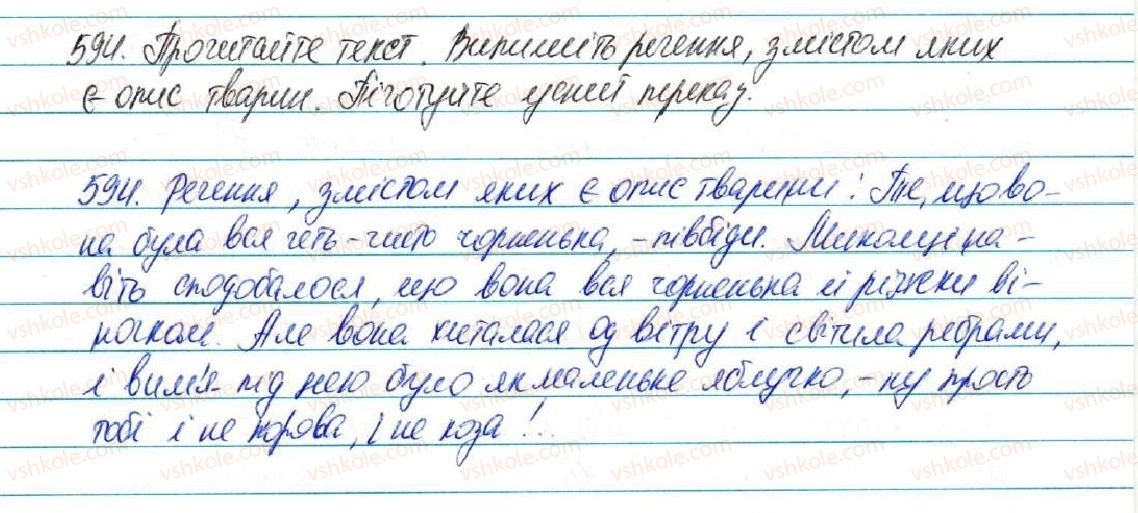 594. Прочитайте текст. Випишіть речення, змістом яких
є опис тварин. Підготуйте усний переказ.
594. Речення, змістом яких є опис тварини: Те, що во-
на була вся геть-чисто чорненька, - півбіди. Миколці на-
віть сподобалося, що вона вся чорненька й ріжки ві-
ночком. Але вона хиталася од вітру і світила ребрами,
і вим'я під нею було як маленьке яблучко, - ну прость
тобі і не корова, і не коза!..